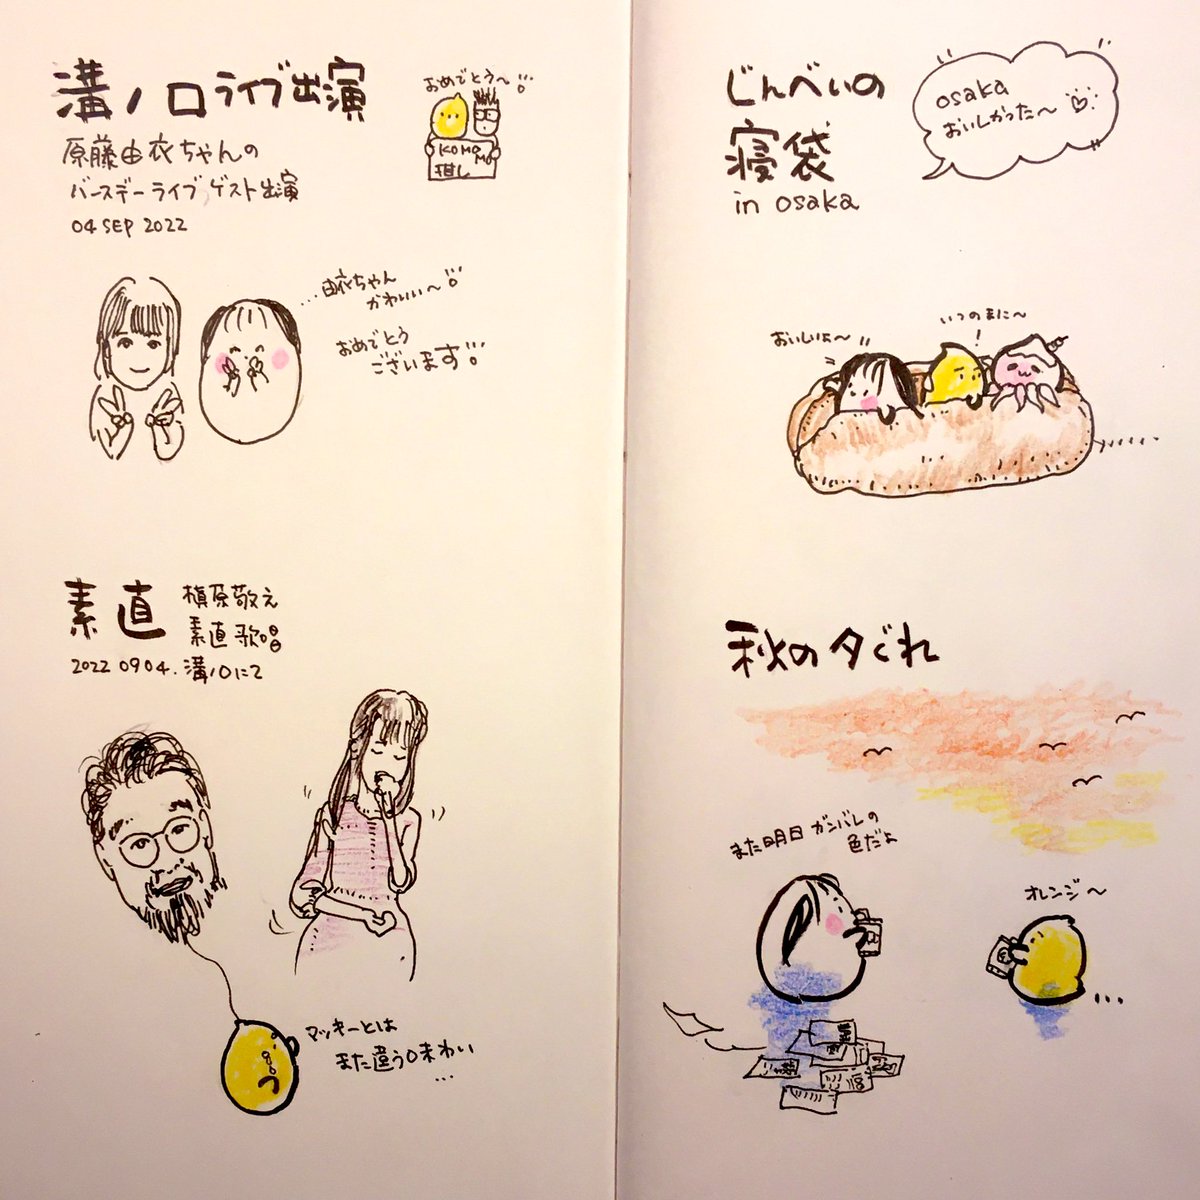 溝ノ口ライブ出演
原藤由衣ちゃんの
バースデーライブ ゲスト出演
04 SEP 2022
おめでとう〜!!
KOMOMO
推し
...由衣ちゃん
かわいい〜!!
おめでとう
ございます!!
素直
槇原敬え
素直 歌唱
2022 0904. 溝ノ口にて
マッキーとは
また違う味わい
...
じんべいの
寝袋
in osaka
osaka
おいしかった〜♡
おいしいよ〜
いつのまに〜
!
秋の夕ぐれ
また明日 ガンバレの
色だよ
オレンジ〜
...